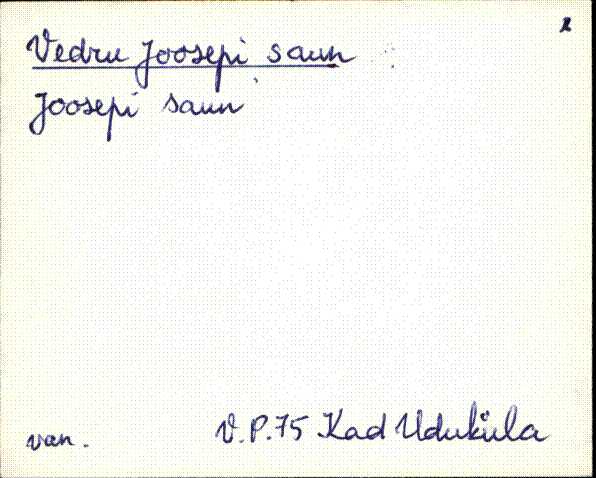 Vedru Joosepi saun
Joosepi saun
van. V.P.75 Kad Uduküla